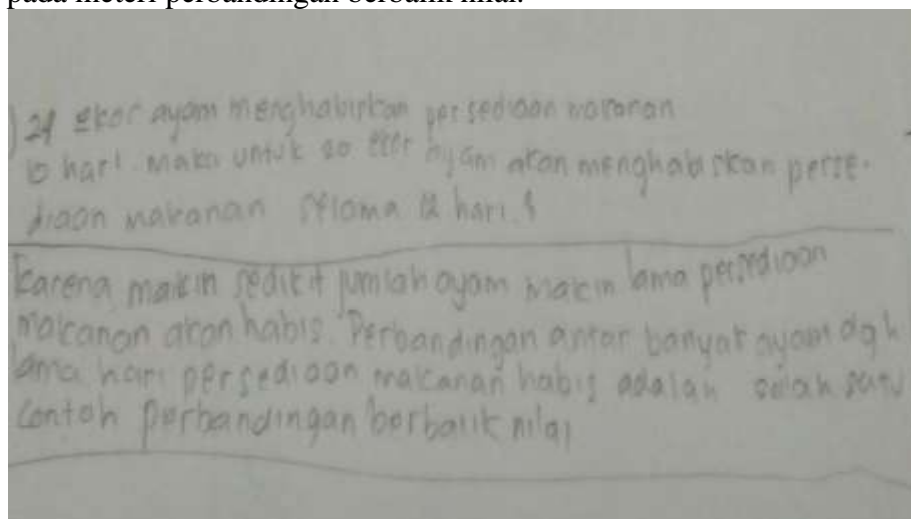 pada meteri perbandingan berbalik nilai.
ekor ayam menghabiskan persediaan makanan
hari maka untuk 20 ekor ayam akan menghabiskan perse-
diaan makanan selama 12 hari
Karena makin sedikit jumlah ayam makin lama persediaan
makanan akan habis. Perbandingan antar banyak ayam dgn
lama hari persediaan makanan habis adalah salah satu
Contoh perbandingan berbalik nilai